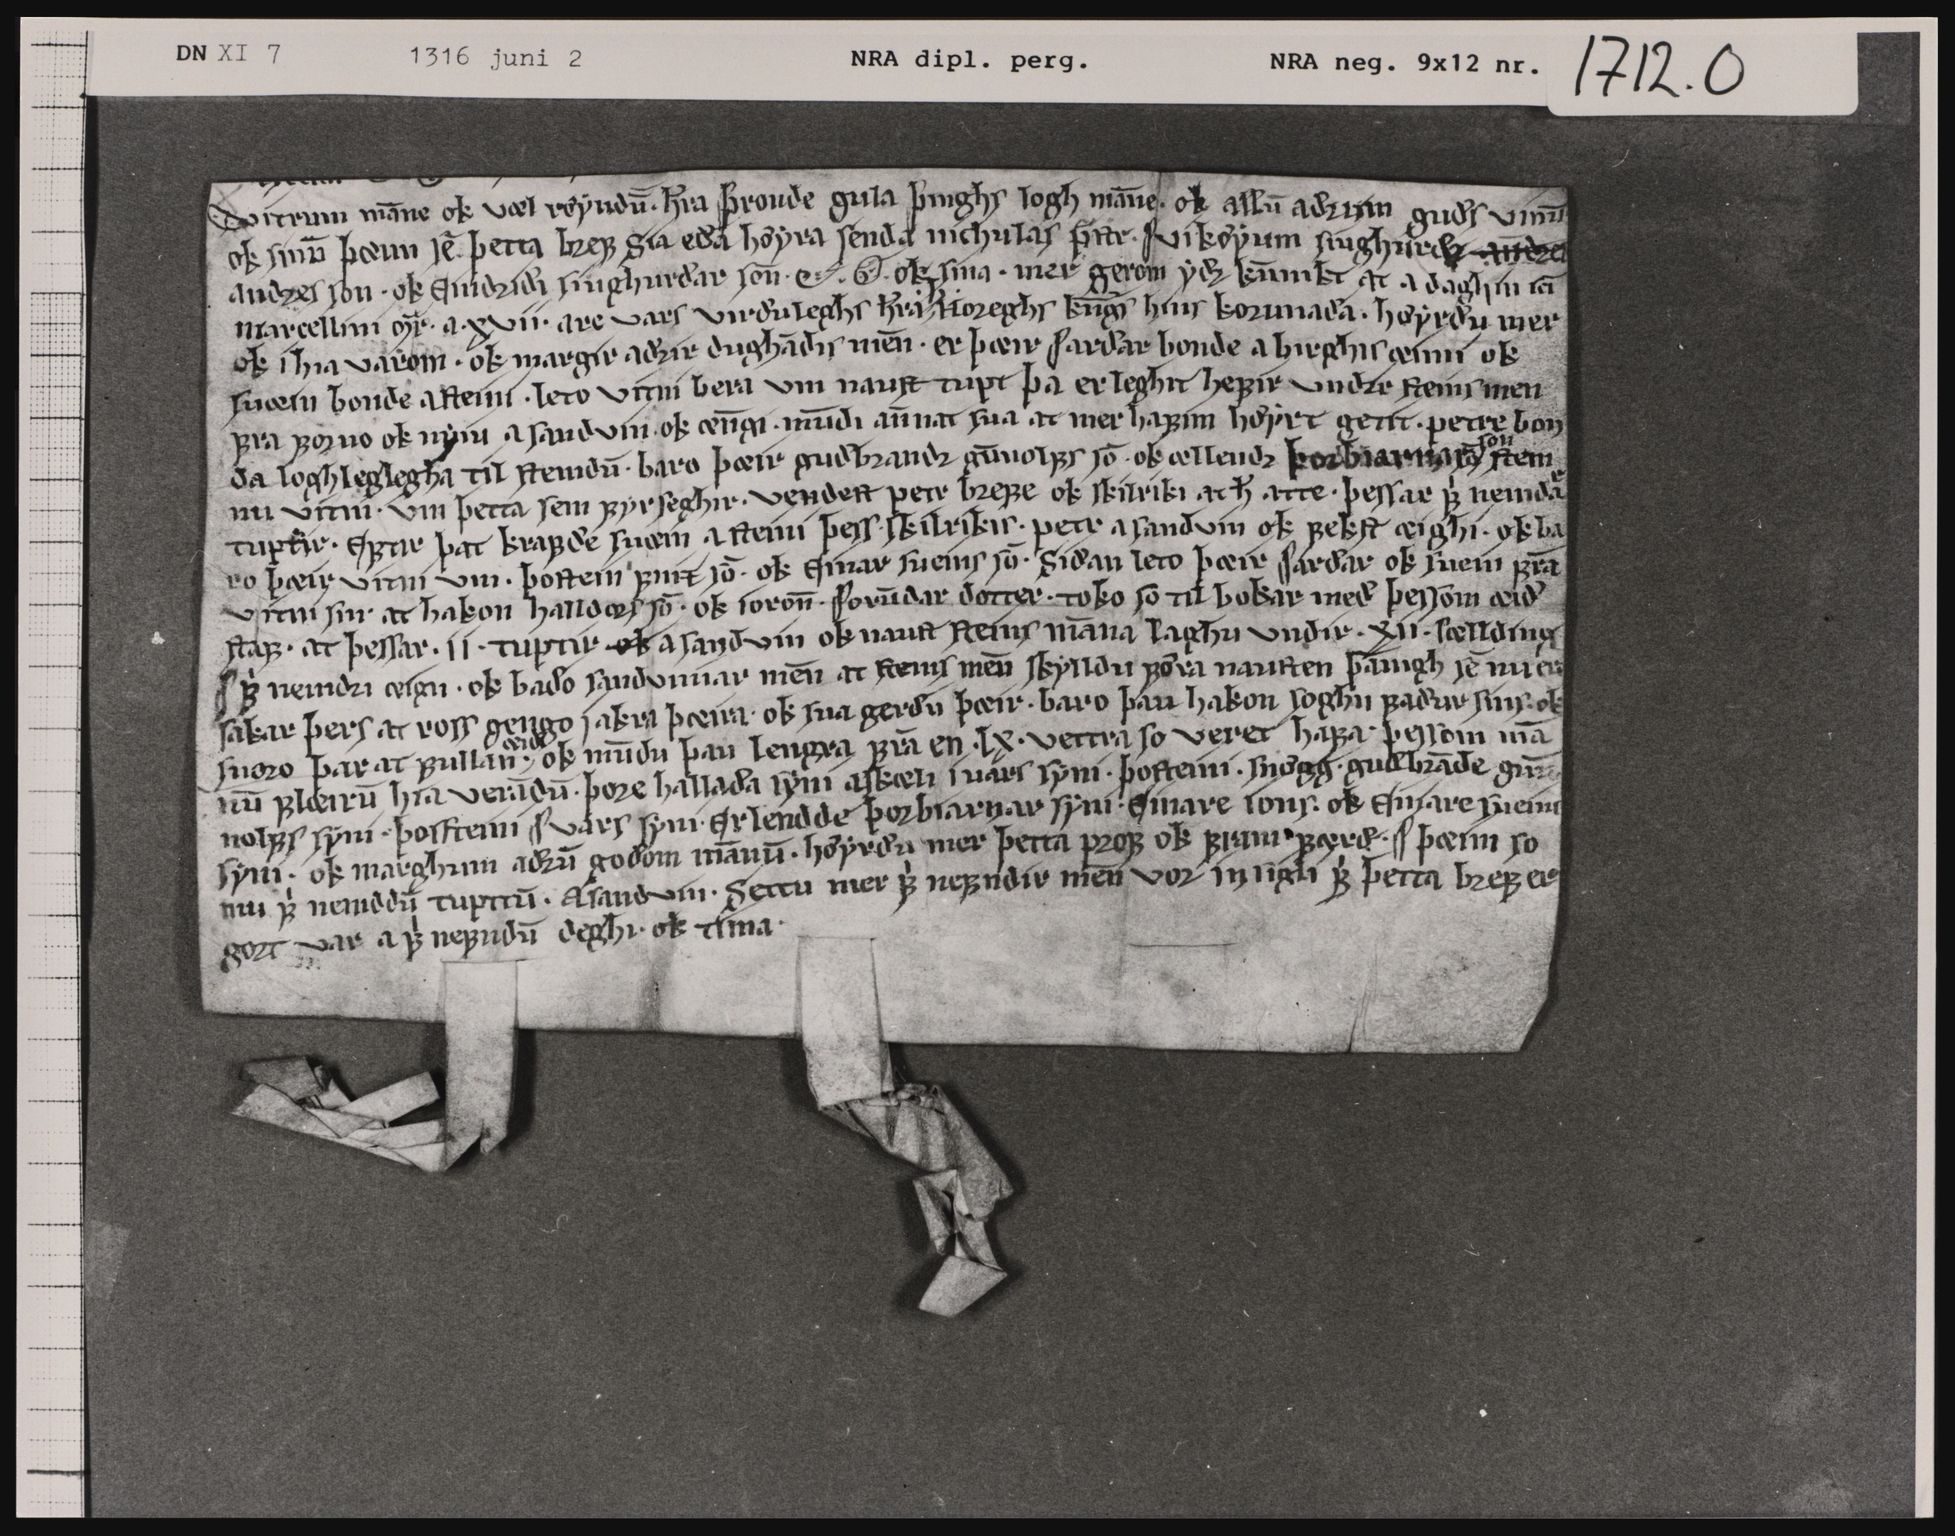 DN XI 7 1316 juni 2 NRA dipl. perg. NRA neg. 9x12 nr. 1712.0
Vitrum mãne ok væl røyndũ · h̃ra þronde gula þinghs logh mãne · ok allũ adrum guðs vinũ
ok sinũ þæim sẽ þetta bref sia eða høyra senda nichulas p̃str · j vikøyum siughurðr
andres son · ok Eindriði siughurðar soñ · Q · G · ok sina · mer gerom yðr kũnikt at a daghin
marcellini · a · xvii · are vars virðuleghs h̃ra Noreghs kũgs hins korunaða · høyrðu mer
ok i hia varom · ok margir adrir dughãdis meñ · er þæir sarðar bonde a birghisæimi ok
suæin bonde a steini · leto vitni bera vm naust tupt þa er leghit hefir vndir steinsmen
fra forno ok nyiu a sanduin · ok æñgi · mũdi añnat sua at mer hafim høyrt getit · petre bon
da loghleglegha til stemdũ · baro þæir guðbrandr gũnolfs sõ · ok ællendr þorbiarnar son stem
nu vitni · vm þetta sem fyr seghir · vendest petr brefe ok skilriki at h̃ atte · þessar f̃ nemdar
tuptir · Eptir þat krafde suæin a steini þess skilrikis · petr a sanduin ok fekst æighi · ok ba
ro þæir vitni vm · þostein finz sõ · ok Einar sueins sõ · Siðan leto þæir sarðar ok suein fra
vitni sin at hakon halldors sõ · ok ioroñ · sorũdar dotter · toko so til bokar með þessom æið
staf · at þessar · ii · tuptir a sanduin ok naust steins mãna laghu vndir · xii · sælding
j f̃ nemdri æign · ok bado sanduinar meñ at steins meñ skylldu føra nausten þãnigh sẽ nu ero
sakar þers at ross gengo j akra þæira · ok sua gerðu þæir · baro þau hakon soghu faður sins · ok
suoro þar at fullañ æið · ok mũdu þau lengra frã en · lx · vettra so veret hafa · þessom mã
nũ flæirũ hia verãdũ · þore hallaða syni askæli iuars syni · þosteini · snøgg · guðbrãde gũ
nolfs syni · þossteini juars syni · Erlendde þorbiarnar syni · Einare ions · ok Einare sueins
syni · ok marghum adrũ goðom mãnũ · høyrðu mer þetta prof ok fram færd · j þæim so
mu f̃ nemddũ tupttũ · a sanduin · Settu mer f̃ nefndir meñ vor insigli f̃ þetta bref er
gort var a f̃ nefndũ deghi · ok tima ·